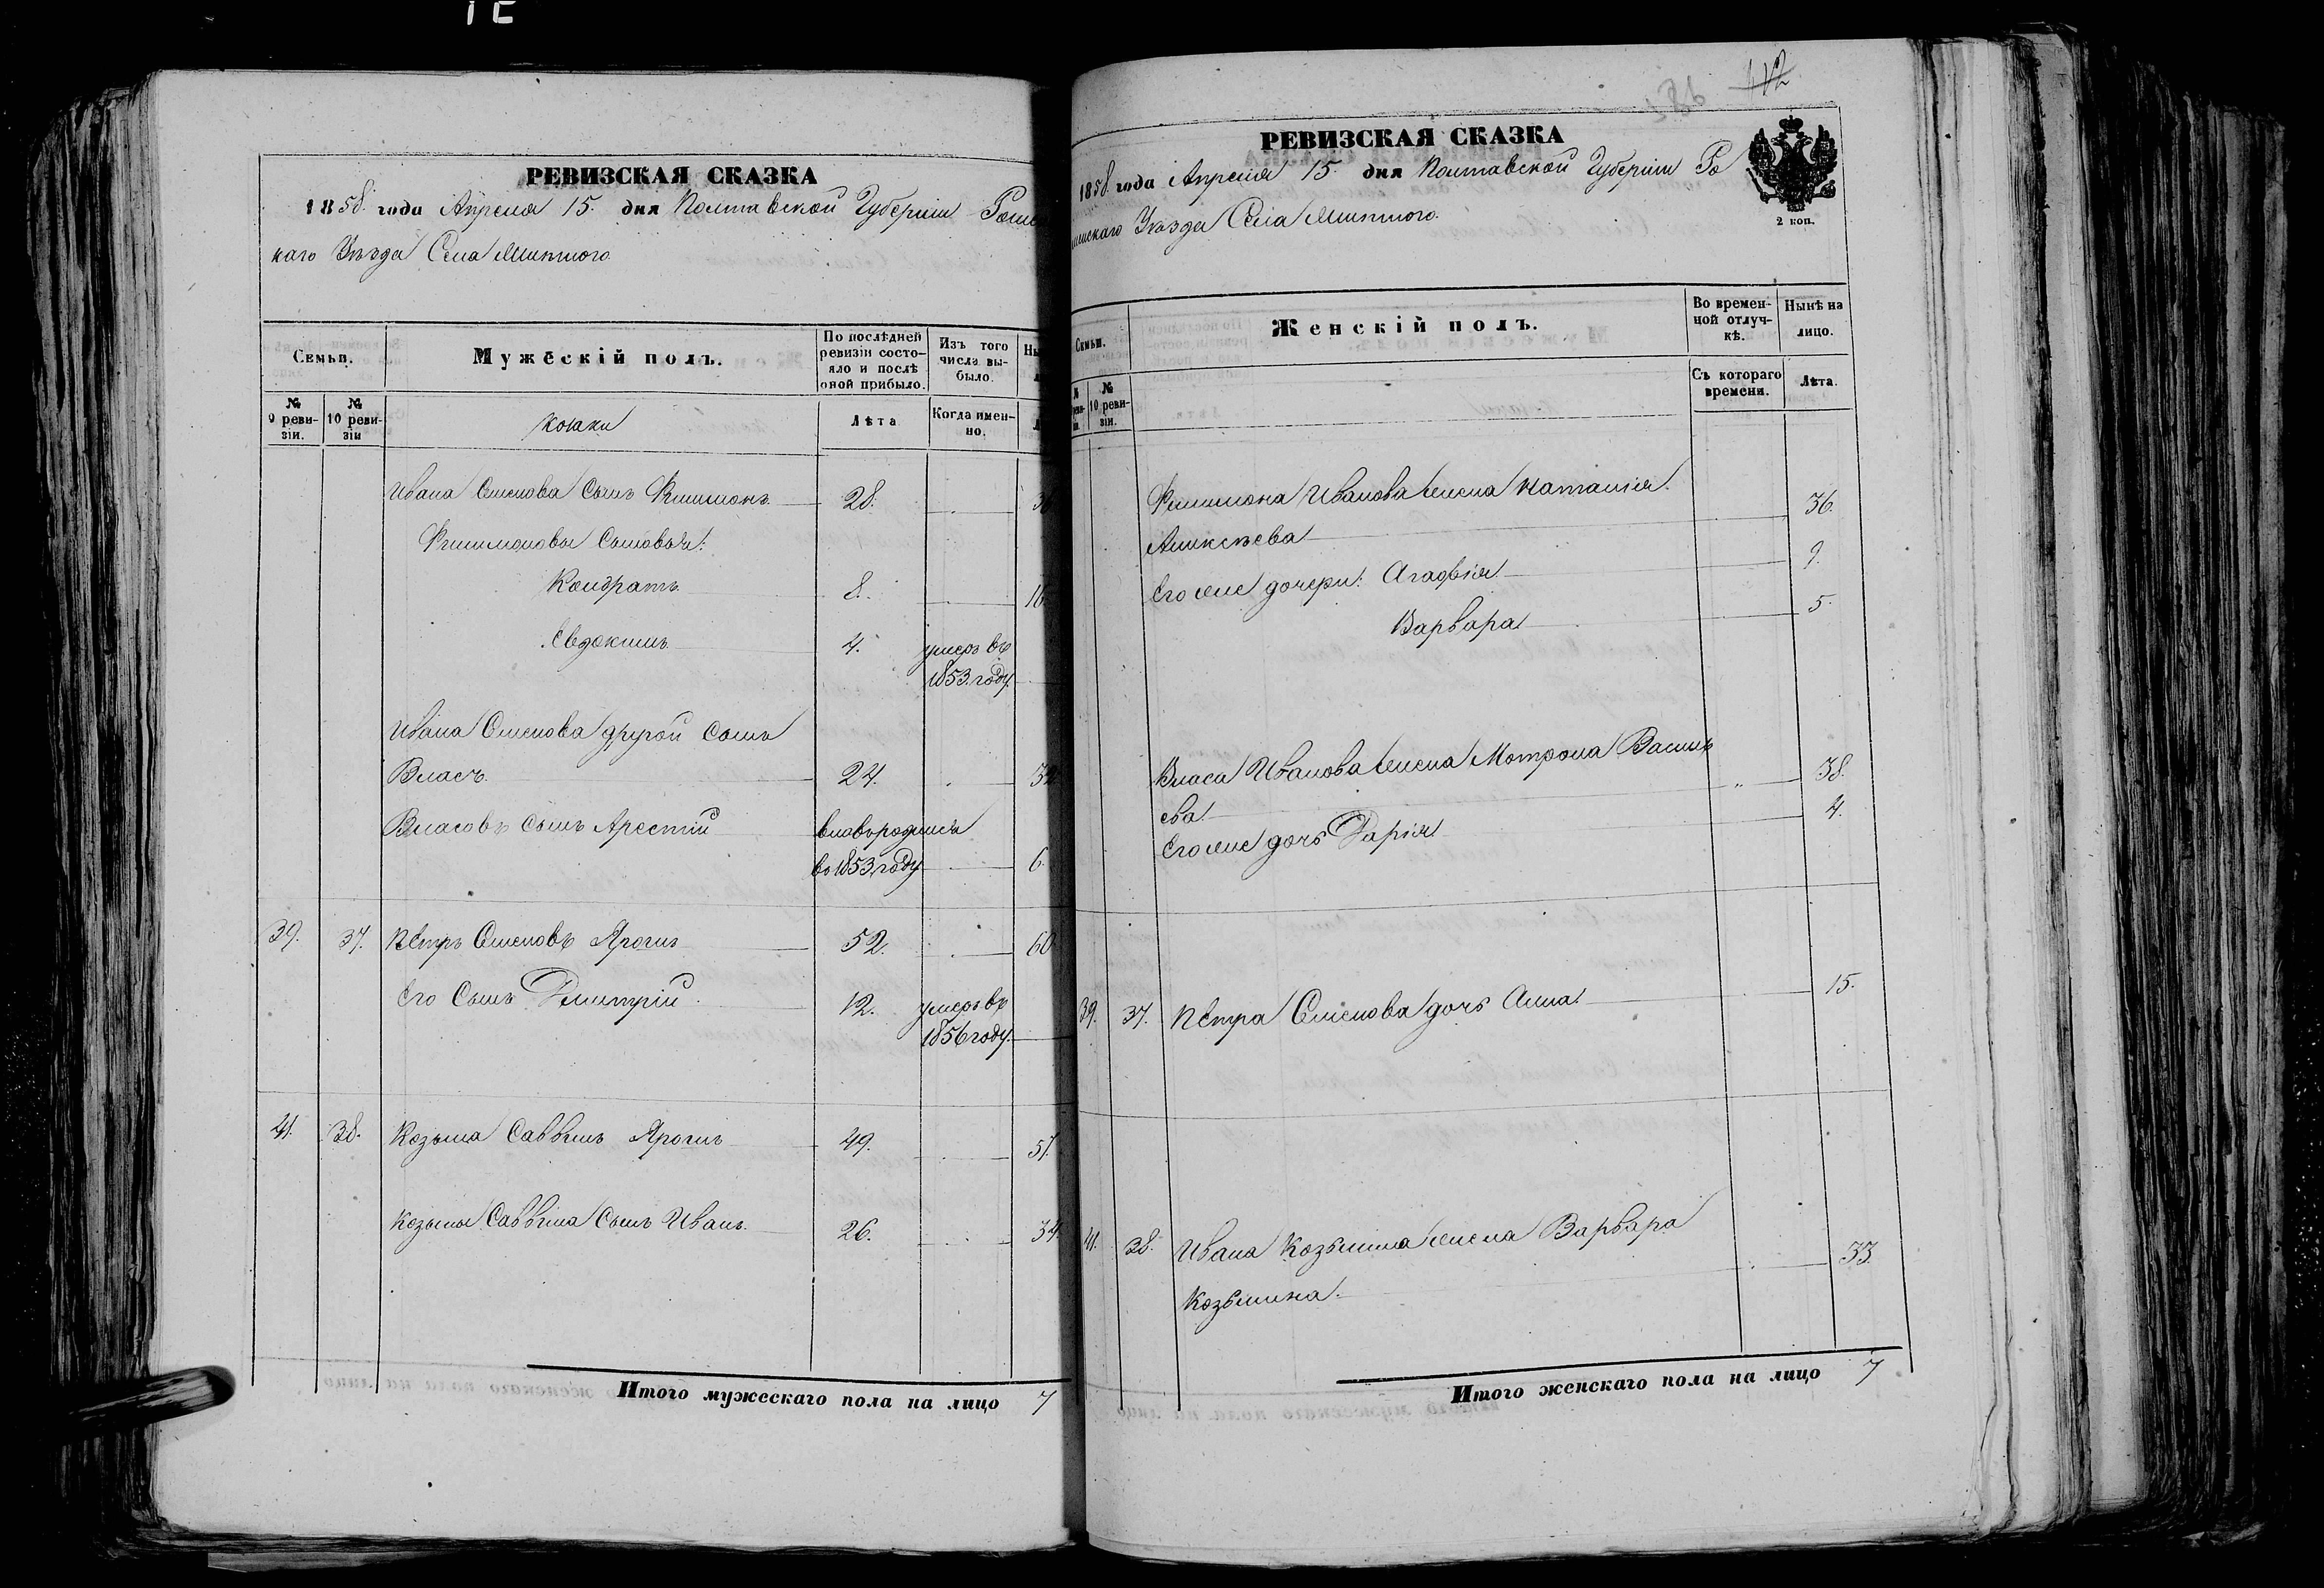 РЕВИЗСКАЯ СКАЗКА
1858. года Апреля 15. дня Полтавской Губерніи Ромен
каго Уѣзда Села Липлого
Семьи.
Мужескій полъ.
По послѣдней ревизіи состояло и послѣ оной прибыло.
Изъ того числа выбыло.
№ 9 ревизіи.
№ 10 ревизіи
козаки
Лѣта
Когда именно.
Ивана Семенова Сынъ Филимонъ 28. 36
Филимоновы Сыновья:
Кондратъ 8. 16
Евдокимъ 4. умеръ въ
1853. году.
Ивана Семенова другой Сынъ
Власъ 24. 32
Власовъ Сынъ Арестій вновьродился
во 1853 году 6.
39. 37. Петръ Семеновъ Ярогиъ 52. 60
Его Сынъ Дмитрій 12. умеръ въ
1856 году.
41. 38. Козьма Саввинъ Ярогиъ 49. 57.
Козьмы Саввина Сынъ Иванъ 26. 34
Итого мужескаго пола на лицо 7
412
РЕВИЗСКАЯ СКАЗКА
1858. года Апреля 15. дня Полтавской Губерніи Ро
менскаго Уѣзда Села
2 коп.
Семьи.
Женскій полъ.
Во временной отлучкѣ.
Нынѣ на лицо.
№ 10 ревизіи.
Съ котораго времени.
Лѣта.
Филимона Иванова жена Наталія
Алексѣева 36.
Его же дочери: Агафія 9.
Варвара 5.
Власа Иванова жена Мотрона Василь
ева 38.
Его же дочь Дарія 4.
39. 37. Петра Семенова дочь Анна 15.
41. 38. Ивана Козьмина жена Варвара
Козьмина. 33.
Итого женскаго пола на лицо 7